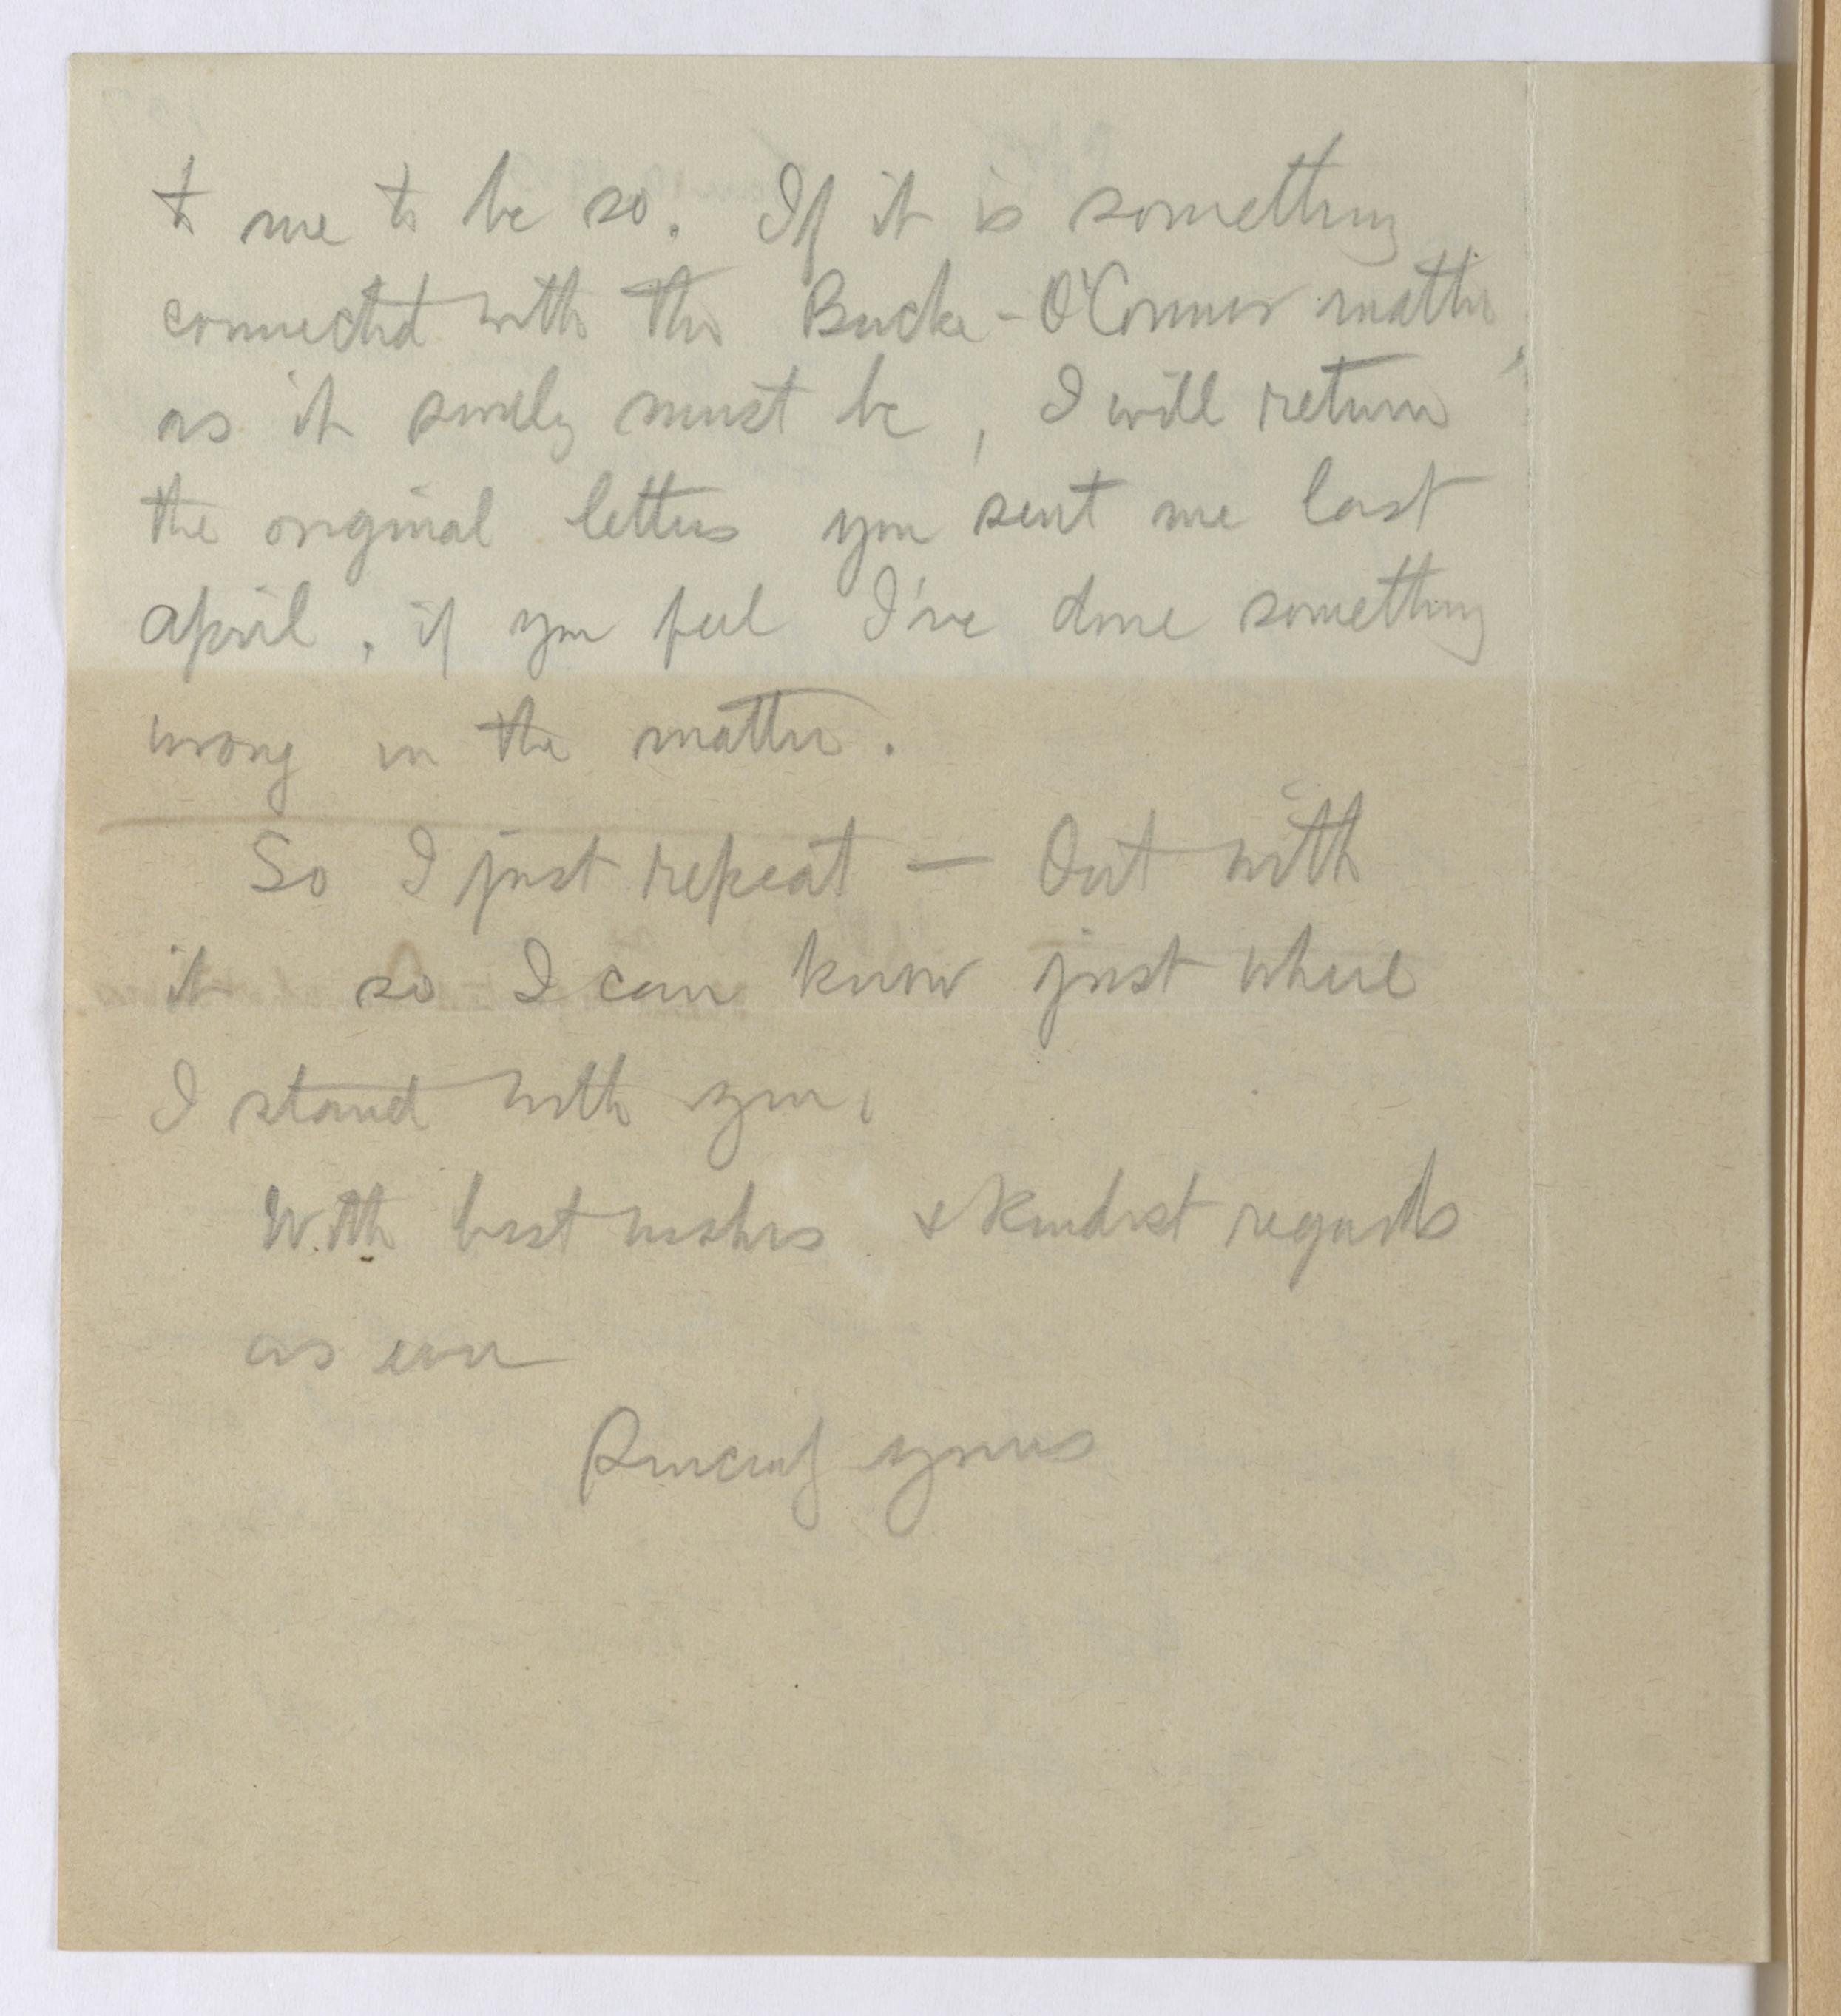 to me to be so. If it is something
connected with the Bucke-O'Connor matter,
as it surely must be, I will return
the original letters you sent me last
april, if you feel I've done something
wrong in the matter.
So I just repeat — Out with
it so I can know just where
I stand with you.
With best wishes & kindest regards
as ever
Sincerely yours